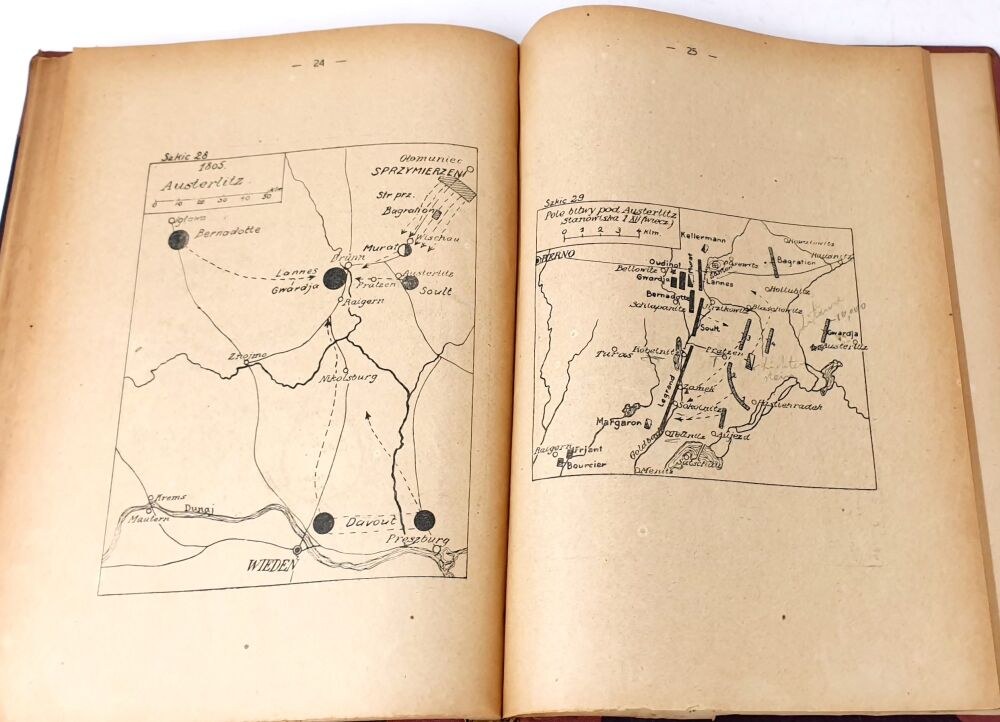 — 24 —
Szkic 28
1805.
Austerlitz
klm
0 10 20 30 40 50
Ołomuniec
SPRZYMIERZENI
Str prz.
Bagration
Wischau
Murat
Iglawa
Bernadotte
Brünn
Lannes
Gwardja
Pratzen
Austerlitz
Soult
Raigern
Znojmo
Nikolsburg
Krems
Mautern
Dunaj
Davout
Preszburg
WIEDEN
— 25 —
Szkic 29
Pole bitwy pod Austerlitz
Stanowiska 1 XII (wiecz.)
0 1 2 3 4 klm.
Kellermann
BERNO
Oudinot
Murat
Bellowitz
Gwardja
Lannes
Bagration
Hollubitz
Bernadotte
Schlapanitz
Blaschowitz
Soult
Gwardja
Austerlitz
Turas
Kobelnitz
Pratzen
Zamek
Legrand
Sokolnitz
Hostieradek
Margaron
Goldbach
Telnitz
Aujezd
Raigern
Friant
Bourcier
Satschan
Menitz